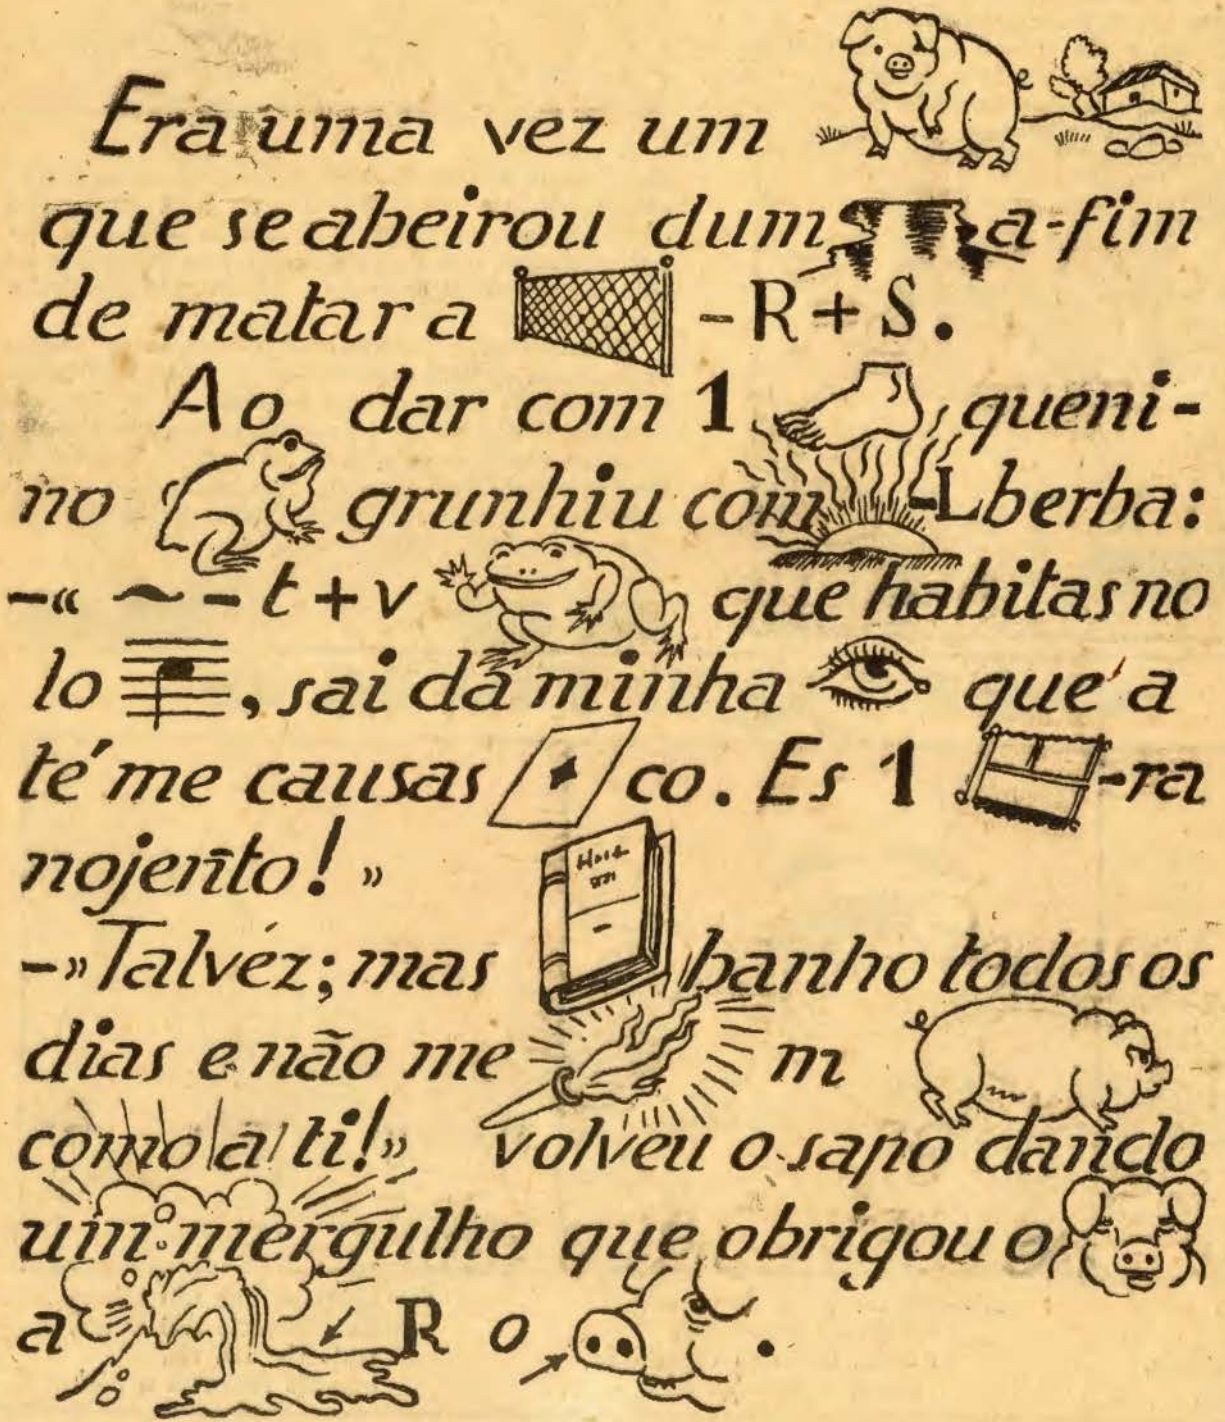 Era uma vez um
que se abeirou dum a-fim
de matar a -R+S.
Ao dar com 1 queni-
no grunhiu com -Lberba:
-« ~ - t + v que habitas no
lo , sai da minha que a
té me causas co. Es 1 -ra
nojento! »
-» Talvez; mas banho todos os
dias e não me m
como a ti!» volveu o sapo dando
um mergulho que obrigou o
a R o .